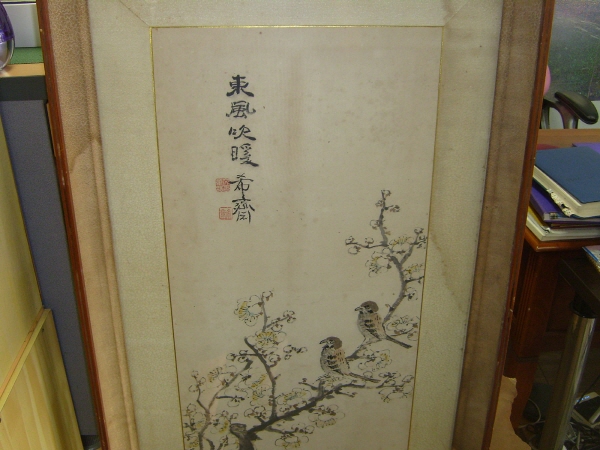 東風吹暖
希齋